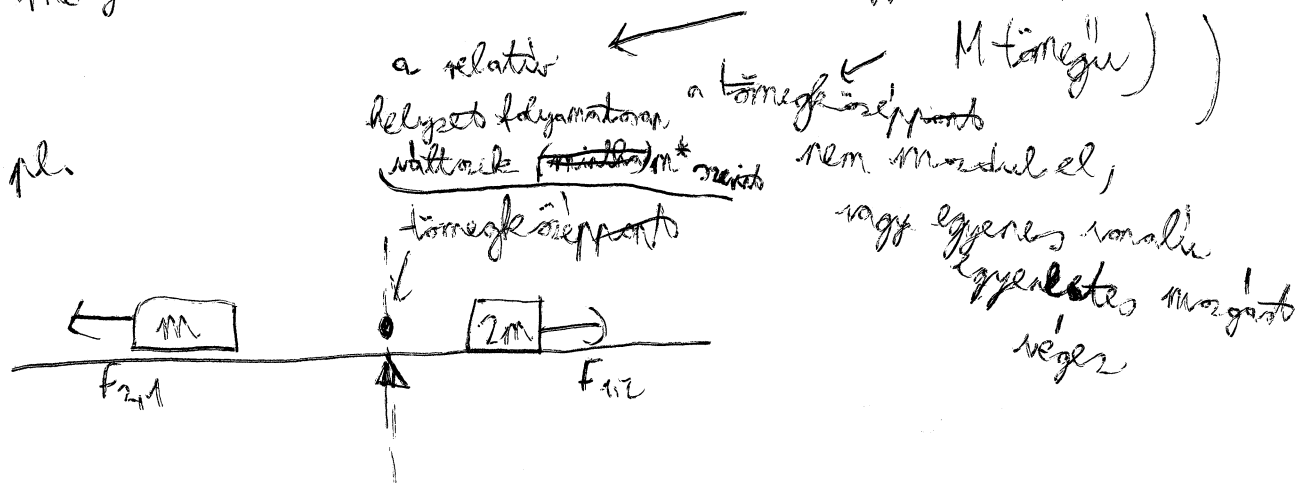 M tömegű) )
a relatív
helyzet folyamatosan
változik (mintha) m* szerint
a tömegközéppont
nem mozdul el,
vagy egyenes vonalú
egyenletes mozgást
végez
pl.
tömegközéppont
m
2m
F2,1
F1,2